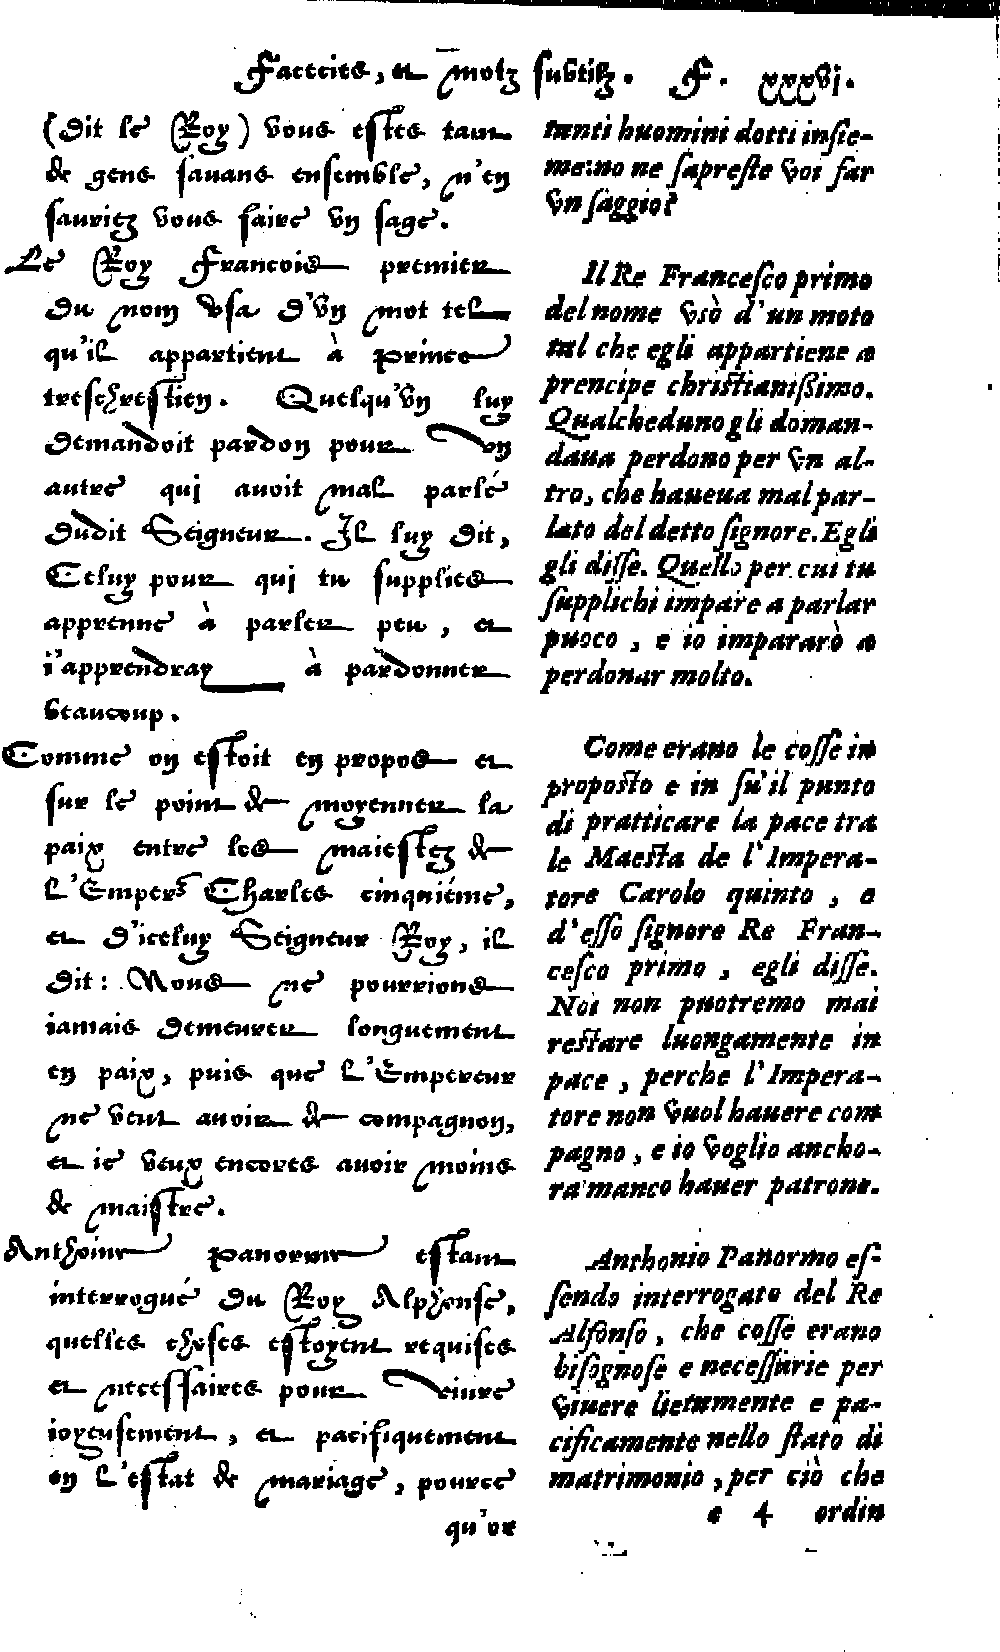 Facecies, et motz subtilz. F. xxxvj.
(dit le Roy) vous estes tant
de gens savans ensemble, n'en
sauriez vous faire vn sage.
Le Roy Francois premier
du nom vsa d'vn mot tel
qu'il appartient à prince
treschrestien. Quelqu'vn luy
demandoit pardon pour vn
autre qui avoit mal parlé
dudit Seigneur. Il luy dit,
Celuy pour qui tu supplies
apprenne à parler peu, et
i'apprendray à pardonner
beaucoup.
Comme on estoit en propos et
sur le point de moyenner la
paix entre les maiestez de
l'Emperr Charles cinquiéme,
et d'iceluy Seigneur Roy, il
dit: Nous ne pourrions
iamais demeurer longuement
en paix, puis que l'Empereur
ne veut avoir de compagnon,
et ie veux encores avoir moins
de maistre.
Anthoine panorme estant
interrogué du Roy Alphonse,
quelles choses estoyent requises
et necessaires pour viure
ioyeusement, et pacifiquement
en l'estat de mariage, pource
qu'or
tanti huomini dotti insie-
me: no ne sapreste voi far
vn saggio?
Il Re Francesco primo
del nome vsò d'un moto
tal che egli appartiene a
prencipe christianißimo.
Qualcheduno gli doman-
daua perdono per vn al-
tro, che haueua mal par-
lato del detto signore. Egli
gli disse. Quello per cui tu
supplichi impare a parlar
puoco, e io impararò a
perdonar molto.
Come erano le cosse in
proposto e in su'il punto
di pratticare la pace tra
le Maesta de l'Impera-
tore Carolo quinto, e
d'esso signore Re Fran-
cesco primo, egli disse.
Noi non puotremo mai
restare luongamente in
pace, perche l'Impera-
tore non vuol hauere com
pagno, e io voglio ancho-
ra manco hauer patrone.
Anthonio Panormo es-
sendo interrogato del Re
Alfonso, che cosse erano
bisognose e necessarie per
viuere lietamente e pa-
cificamente nello stato di
matrimonio, per ciò che
e 4 ordin